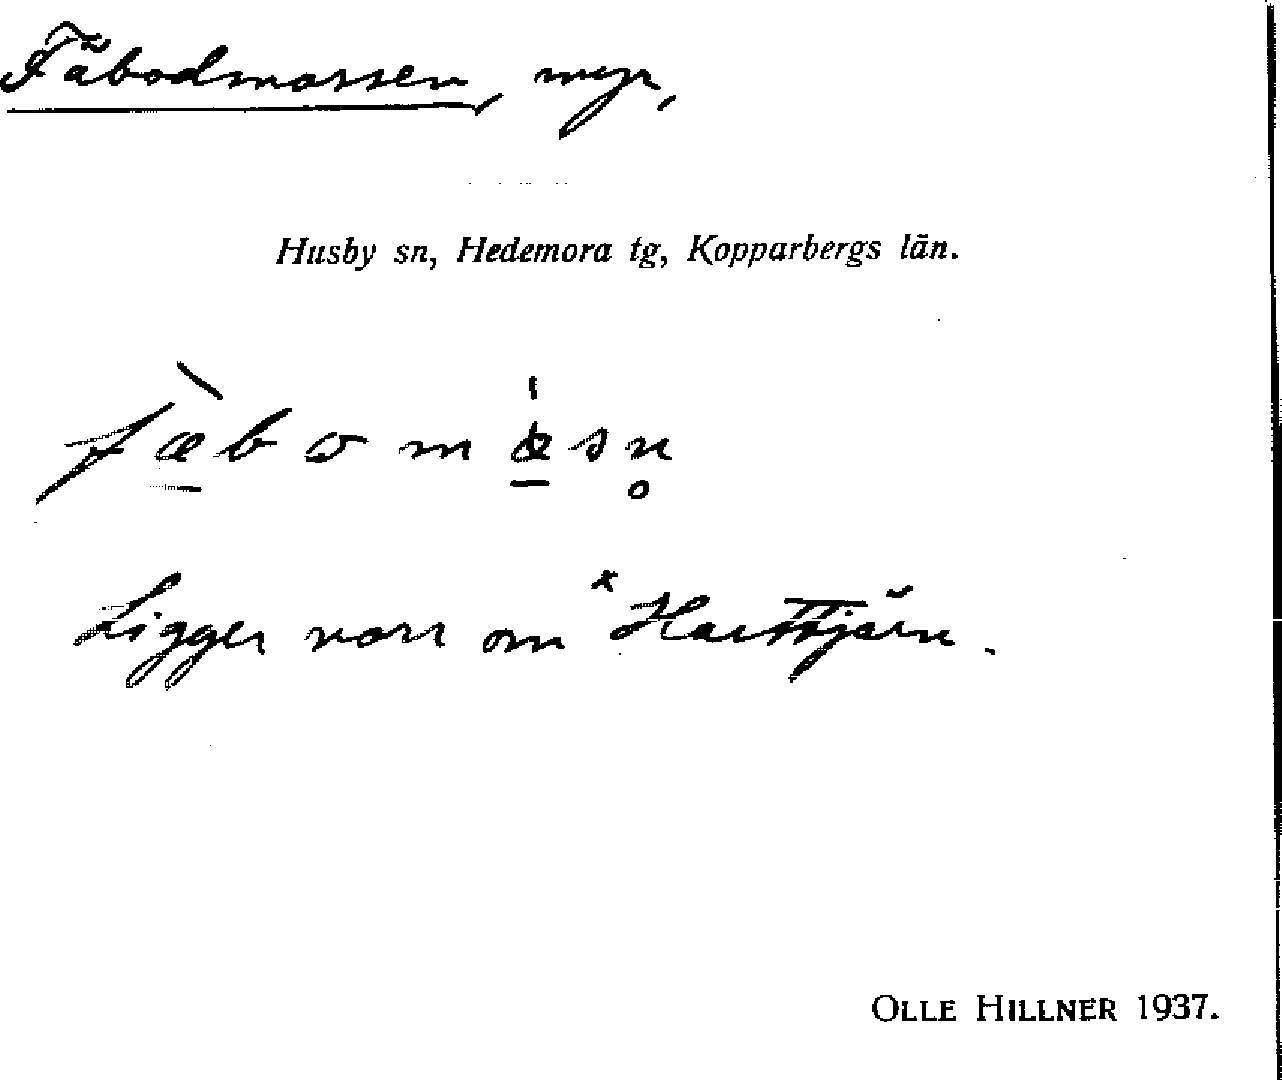 Fäbodmossen, myr,
Husby sn, Hedemora tg, Kopparbergs län.
Ligger norr om
OLLE HILLNER 1937.